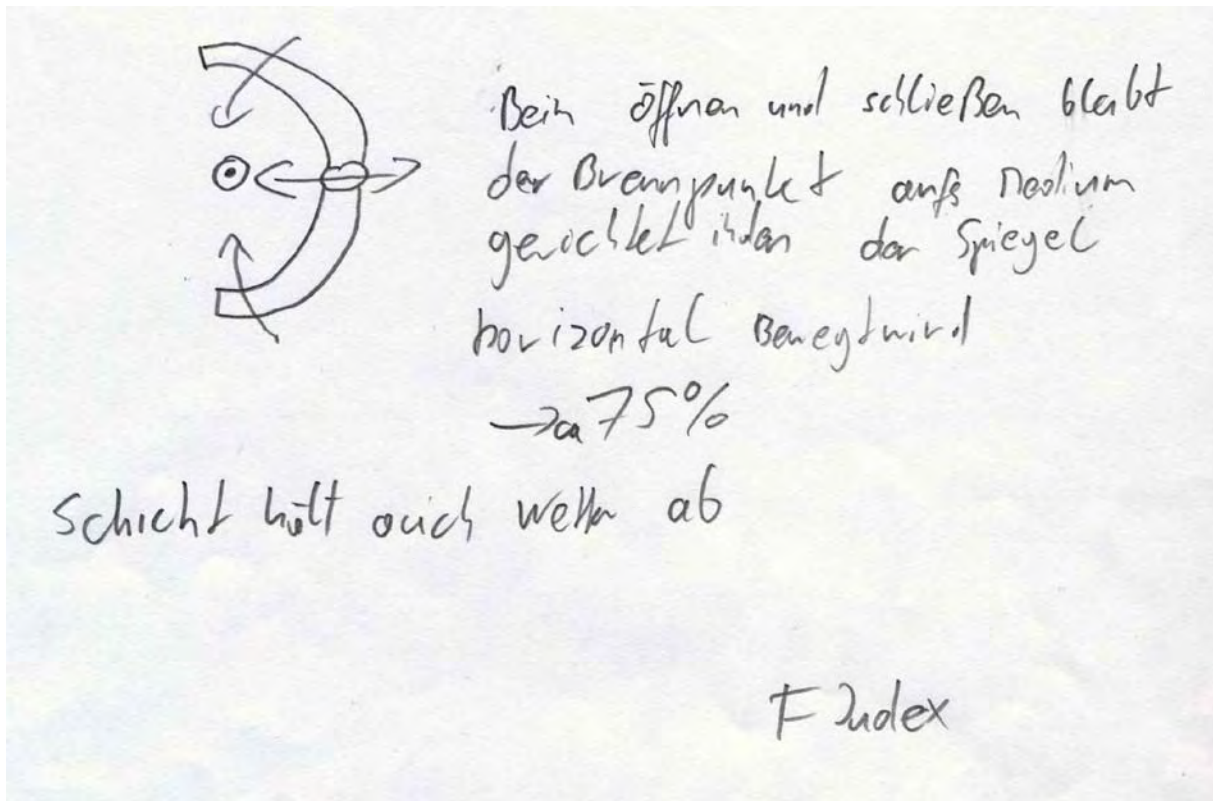 Beim öffnen und schließen bleibt
der Brennpunkt aufs Medium
gerichtet indem der Spiegel
horizontal Bewegt wird
→ ca 75%
Schicht hält auch Wellen ab
F Index